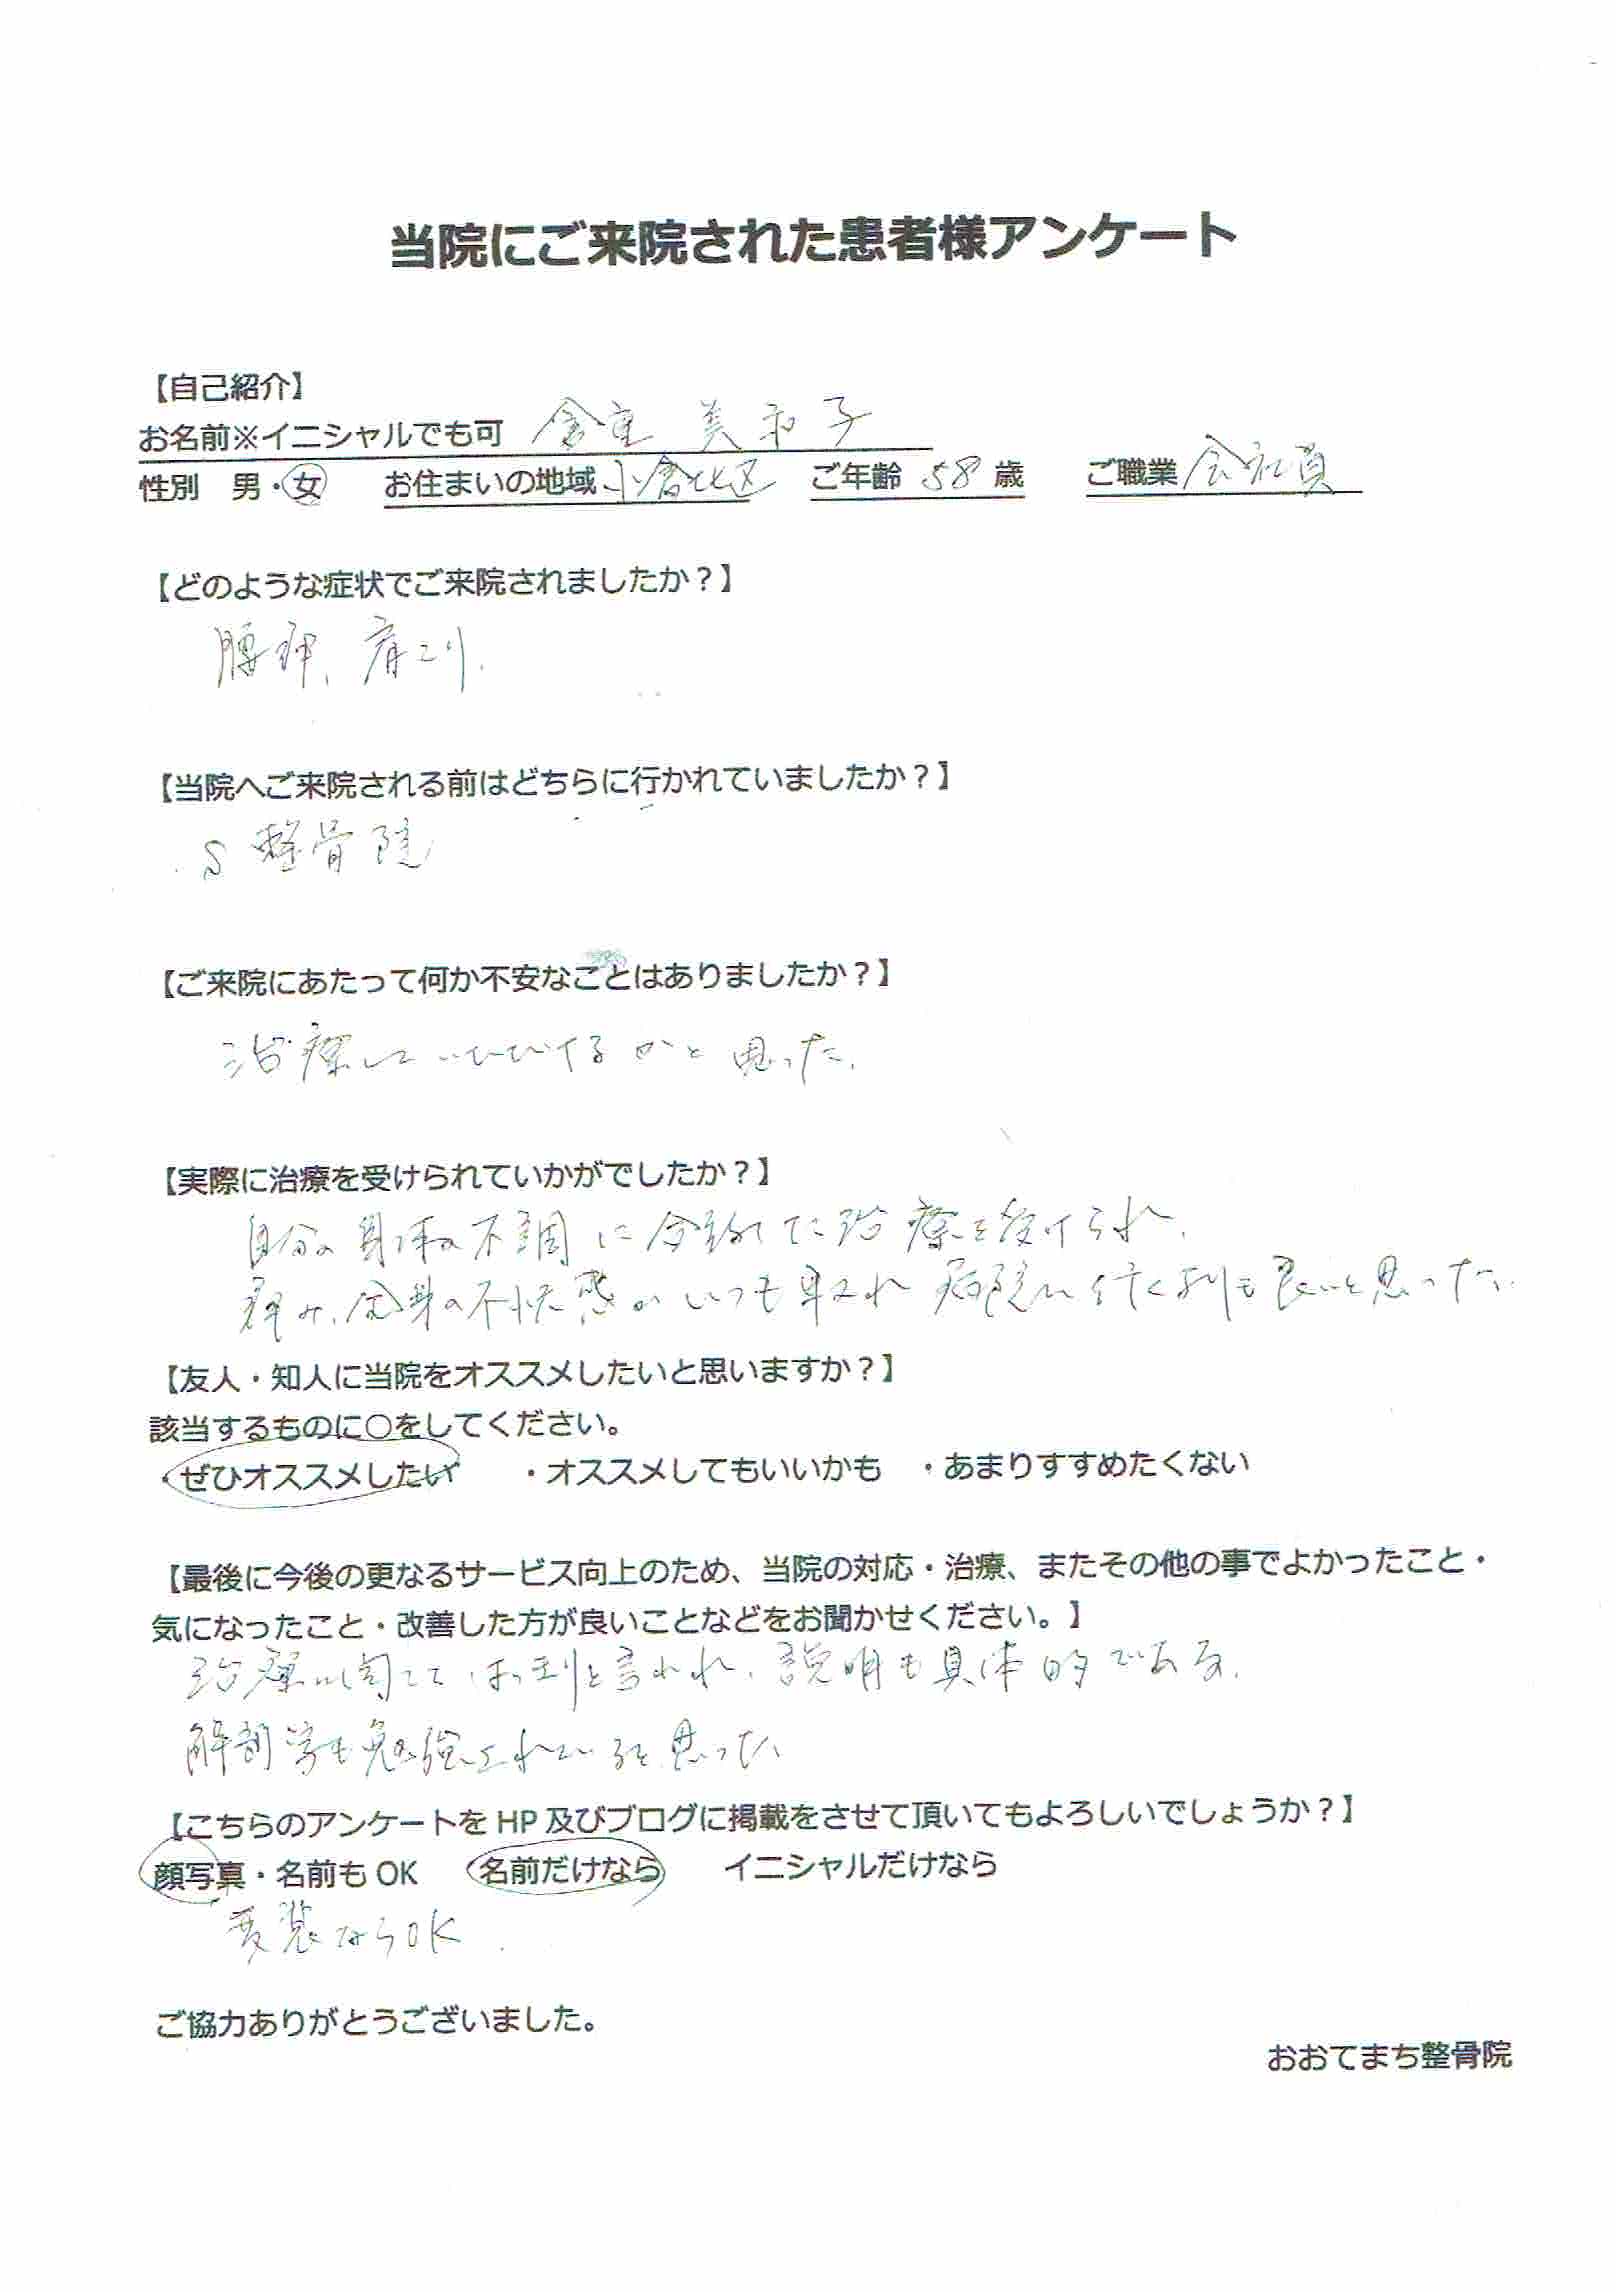 当院にご来院された患者様アンケート
【自己紹介】
お名前※イニシャルでも可 倉重 美和子
性別 男・女 お住まいの地域 小倉北区 ご年齢 58 歳 ご職業 会社員
【どのような症状でご来院されましたか？】
腰痛、肩こり.
【当院へご来院される前はどちらに行かれていましたか？】
S整骨院
【ご来院にあたって何か不安なことはありましたか？】
治療して するかと思った.
【実際に治療を受けられていかがでしたか？】
自分の身体の不調に合わせた治療を受けられ、
痛み、全身の不快感がいつも取れ 病院に行くよりも良いと思った.
【友人・知人に当院をオススメしたいと思いますか？】
該当するものに○をしてください。
・ぜひオススメしたい ・オススメしてもいいかも ・あまりすすめたくない
【最後に今後の更なるサービス向上のため、当院の対応・治療、またその他の事でよかったこと・
気になったこと・改善した方が良いことなどをお聞かせください。】
治療に関して はっきりと言われ、説明も具体的である.
解剖学も勉強されていると思った
【こちらのアンケートを HP 及びブログに掲載をさせて頂いてもよろしいでしょうか？】
顔写真・名前も OK 名前だけなら イニシャルだけなら
変装ならOK.
ご協力ありがとうございました。
おおてまち整骨院